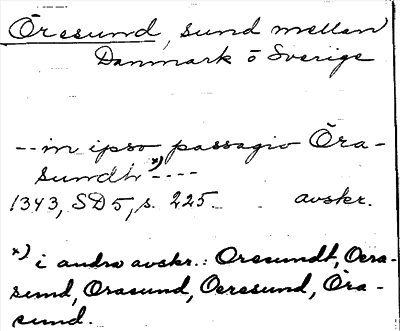 Öresund, sund mellan
Danmark o Sverige
--in ipso passagio Öra-
sundh *)----
1343, SD 5, s. 225. avskr.
*) i andra avskr.: Oresundt, Oera-
sund, Orasund, Oeresund, Öra-
sund.